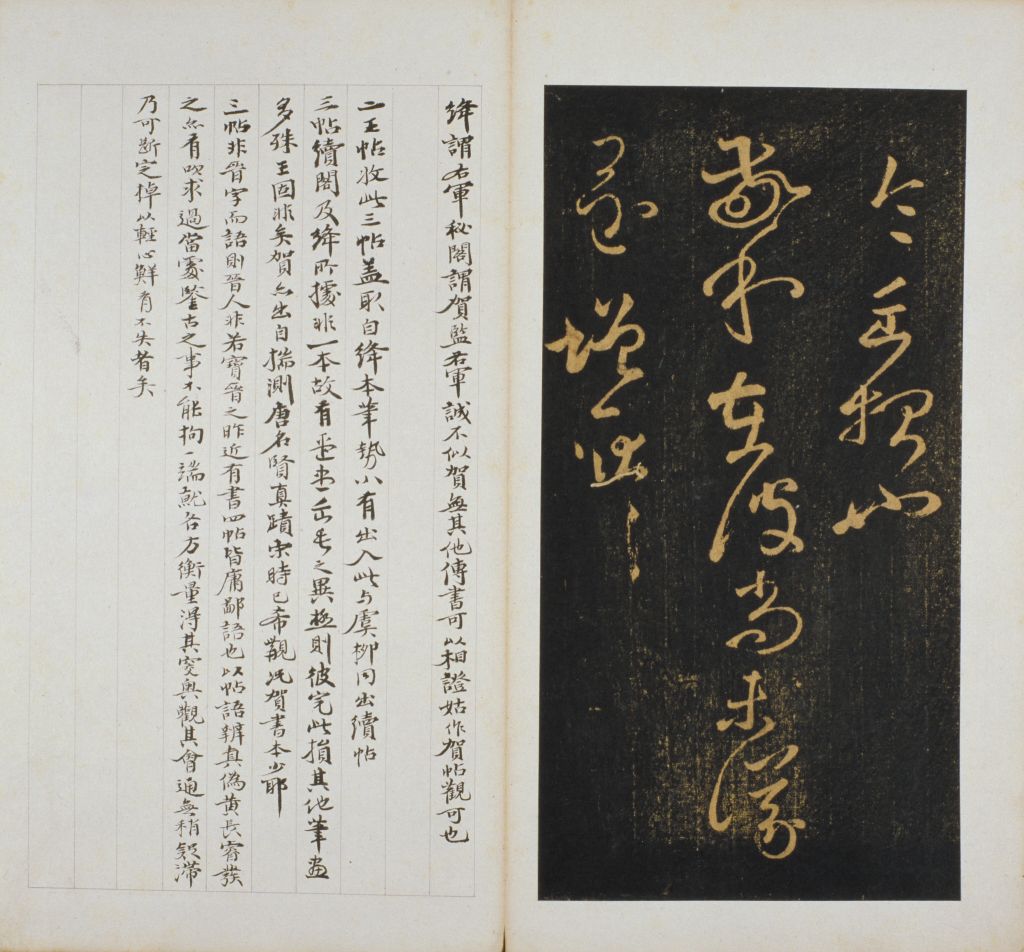 敬和在彼尚未議
還增
絳謂右軍秘閣謂賀監右軍誠不似賀無其他傳書可以相證姑作賀帖觀可也
二王帖收此三帖蓋取自絳本筆勢小有出入此与虞柳同出續帖
三帖續閣及絳所據非一本故有 之異極則彼完此損其他筆畫
多殊王固非矣賀亦出自揣測唐名賢真蹟宋時已希觀况賀書本少耶
三帖非晉字而語則晉人非若寶晉之昨近有書四帖皆庸鄙語也以帖語辨真偽黃長睿發
之亦有吹求過當處鑒古之事不能拘一端就各方衡量得其窔奧觀其會通無稍疑滯
乃可斷定掉以輕心鮮有不失者矣